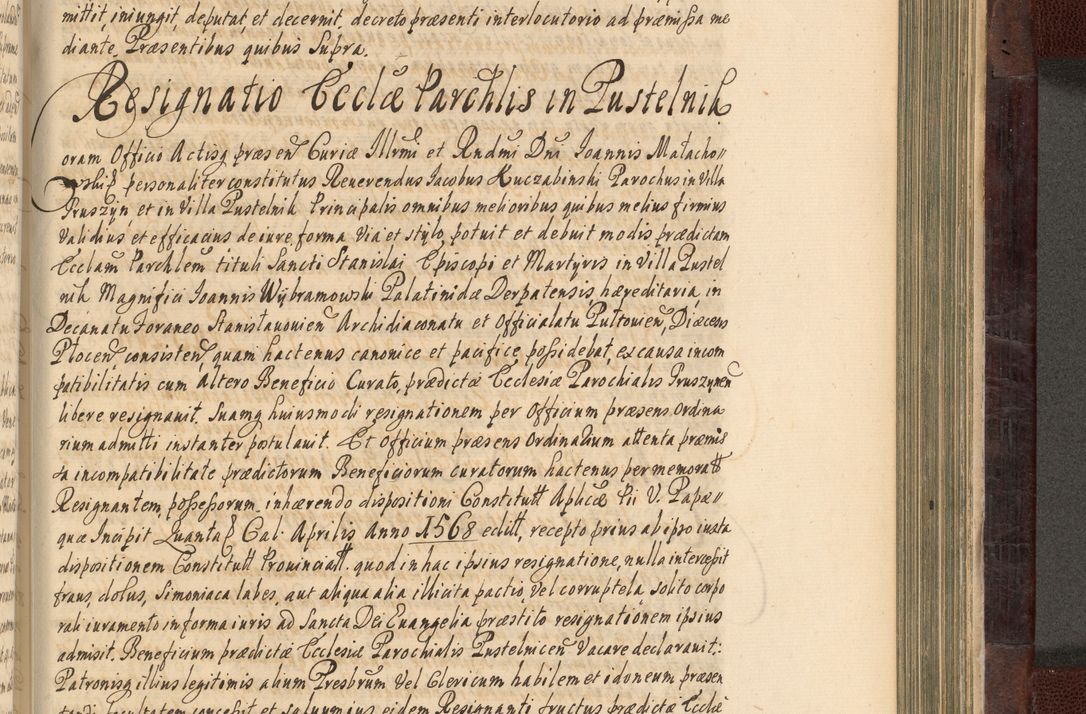 mittit, iniungit, deputat, et decernit, decreto præsenti interlocutorio ad præmissa me
diante. Præsentibus quibus Supra.
Resignatio Ecclæ Parchlis in Pustelnik
oram Officio Actisq præsen Curiæ Illrmi et Rndmi Dni Joannis Małacho//
wskip personaliter constitutus Reuerendus Jacobus Kuczabinski Parochus in Villa
Pruszyn, et in Villa Pustelnik Principalis omnibus melioribus quibus melius firmius
validius et efficacius de iure, forma via et stylo, potuit et debuit modis prædictam
Ecclam Parchlem tituli Sancti Stanislai Episcopi et Martyris in Villa Pustel
nik Magnifici Joannis Wybramowski Palatinidæ Derpatensis hæreditaria, in
Decanatu Foraneo Stanisłauouien Archidiaconatu et Officialatu Pultouien, Diæcesis
Plocen consisten, quam hactenus canonice et pacifice possidebat, ex causa incom
patibilitatis cum altero Beneficio Curato, prædictæ Ecclesiæ Parochialis Pruszynen
libere resignauit. Suamq huiusmodi resignationem per Officium præsens Ordina
rium admitti instanter postulauit. Et Officium præsens Ordinarium attenta præmis
sa incompatibilitate prædictorum Beneficiorum curatorum hactenus per memoratt
Resignantem possessorum, inhærendo dispositioni Constitutt Aplicæ Pii V. Papæ//
quæ Incipit Quantap Cal. Aprilis Anno 1568 editt, recepto prius ab ipso iuxta
dispositionem Constitutt Prouinciatt. quod in hac ipsius resignatione, nulla intercessit
fraus, dolus, Simoniaca labes, aut aliqua alia illicita pactio, vel corruptela, solito corpo
rali iuramento in forma iuris ad Sancta Dei Euangelia præstito resignationem ipsius
admisit. Beneficium prædictæ Ecclesiæ Parochialis Pustelnicen Vacare declarauit.:
Patronisq illius legitimis alium Presbrum vel Clericum habilem et idoneum præsen
tandi facultatem concessit et saluum ius eidem Resignanti fructus prædictæ Ecclæ